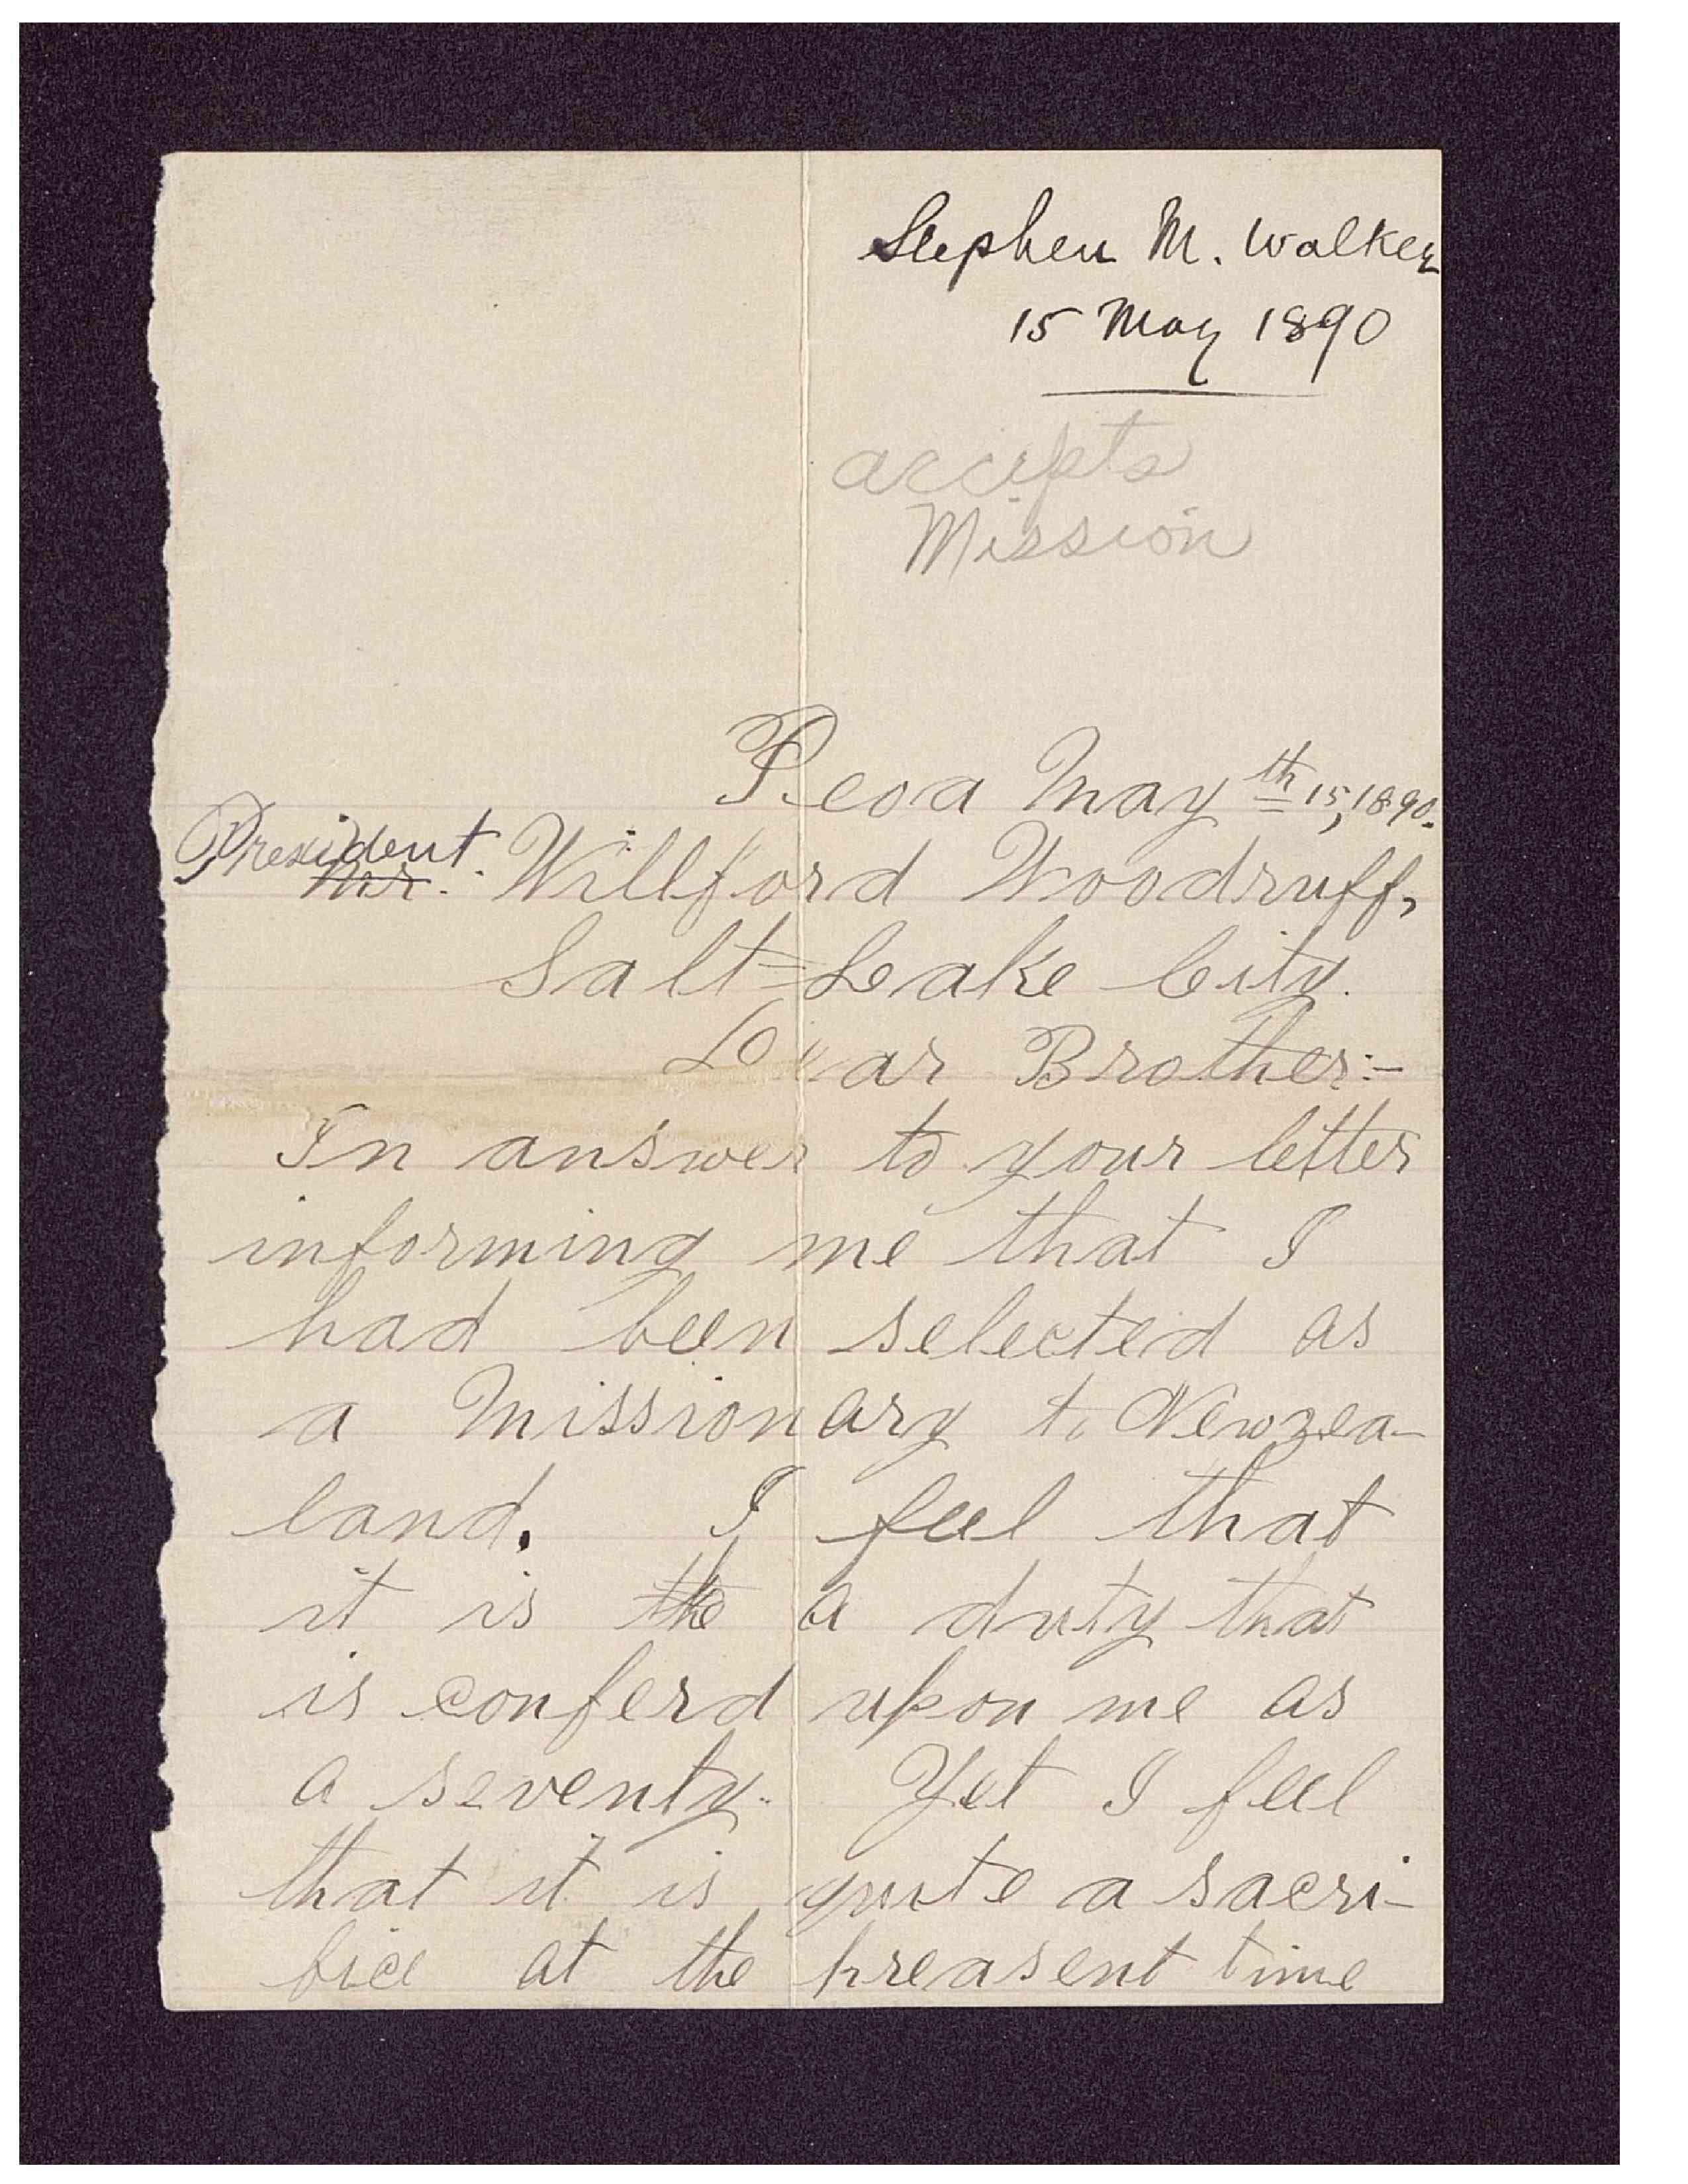 Stephen M. Walker
15 May 1890
accepts
Mission
Peoa May th 15, 1890.
President
Mr. Willford Woodruff,
Salt=Lake City.
Dear Brother:-
In answer to your letter
informing me that I
had been selected as
a Missionary to Newzea-
land. I feel that
it is the a duty that
is conferd upon me as
a seventy. Yet I feel
that it is quite a sacri-
fice at the preasent time